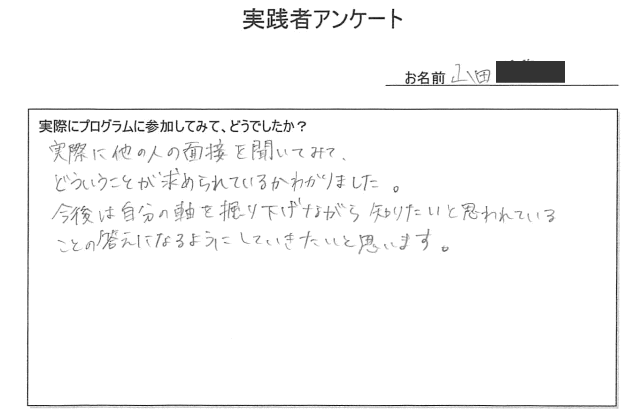 実践者アンケート
お名前 山田
実際にプログラムに参加してみて、どうでしたか?
実際に他の人の面接を聞いてみて、
どういうことが求められているかわかりました。
今後は自分の軸を掘り下げながら知りたいと思われている
ことの答えになるようにしていきたいと思います。